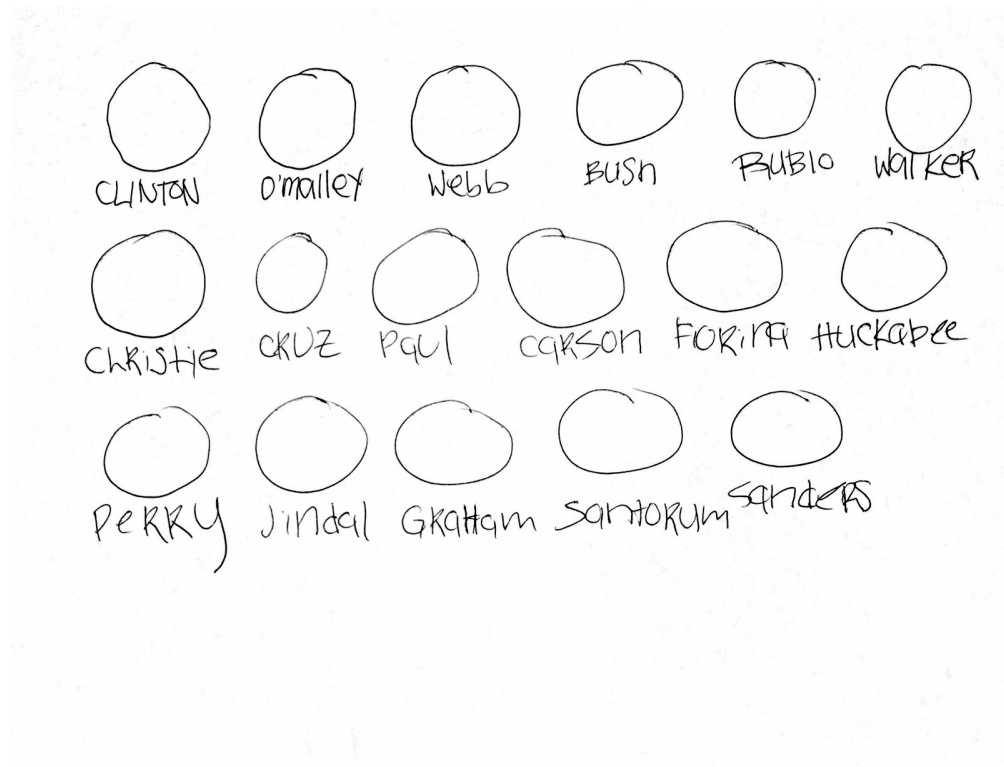 CLINTON O'malley Webb BUSh RUBIO WalKER
ChRiStie CRUZ Paul CaRSON FORina HUCKabee
PeRRY Jindal GRaHam SantORUm SandeRS